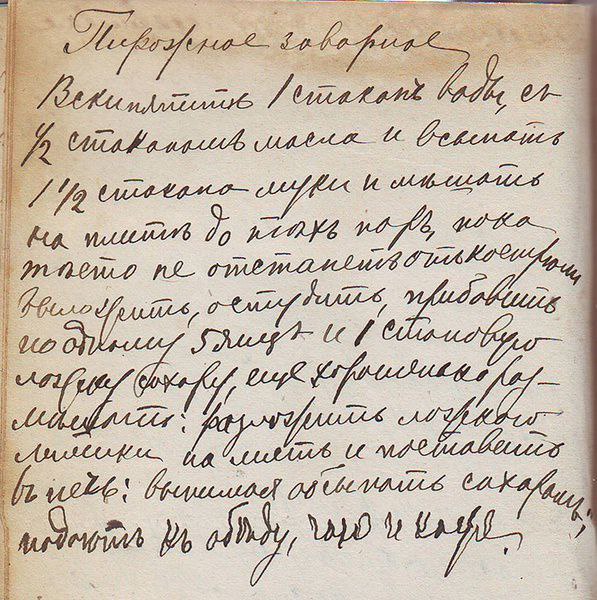 Пирожное заварное
Вскипятить 1 стаканъ воды, съ
1/2 стаканомъ масла и всыпать
1 1/2 стакана муки и мѣшать
на плитѣ до тѣхъ поръ, пока
тѣсто не отстанетъ отъ кострюли
выложить, остудить, прибавить
по одному 5 яицъ и 1 столовую
ложку сахару, еще хорошенько раз-
мѣшать: разложить ложкою
лепешки на листъ и поставить
въ печь: вынимая обсыпать сахаромъ;
подаютъ къ обѣду, чаю и кофе.